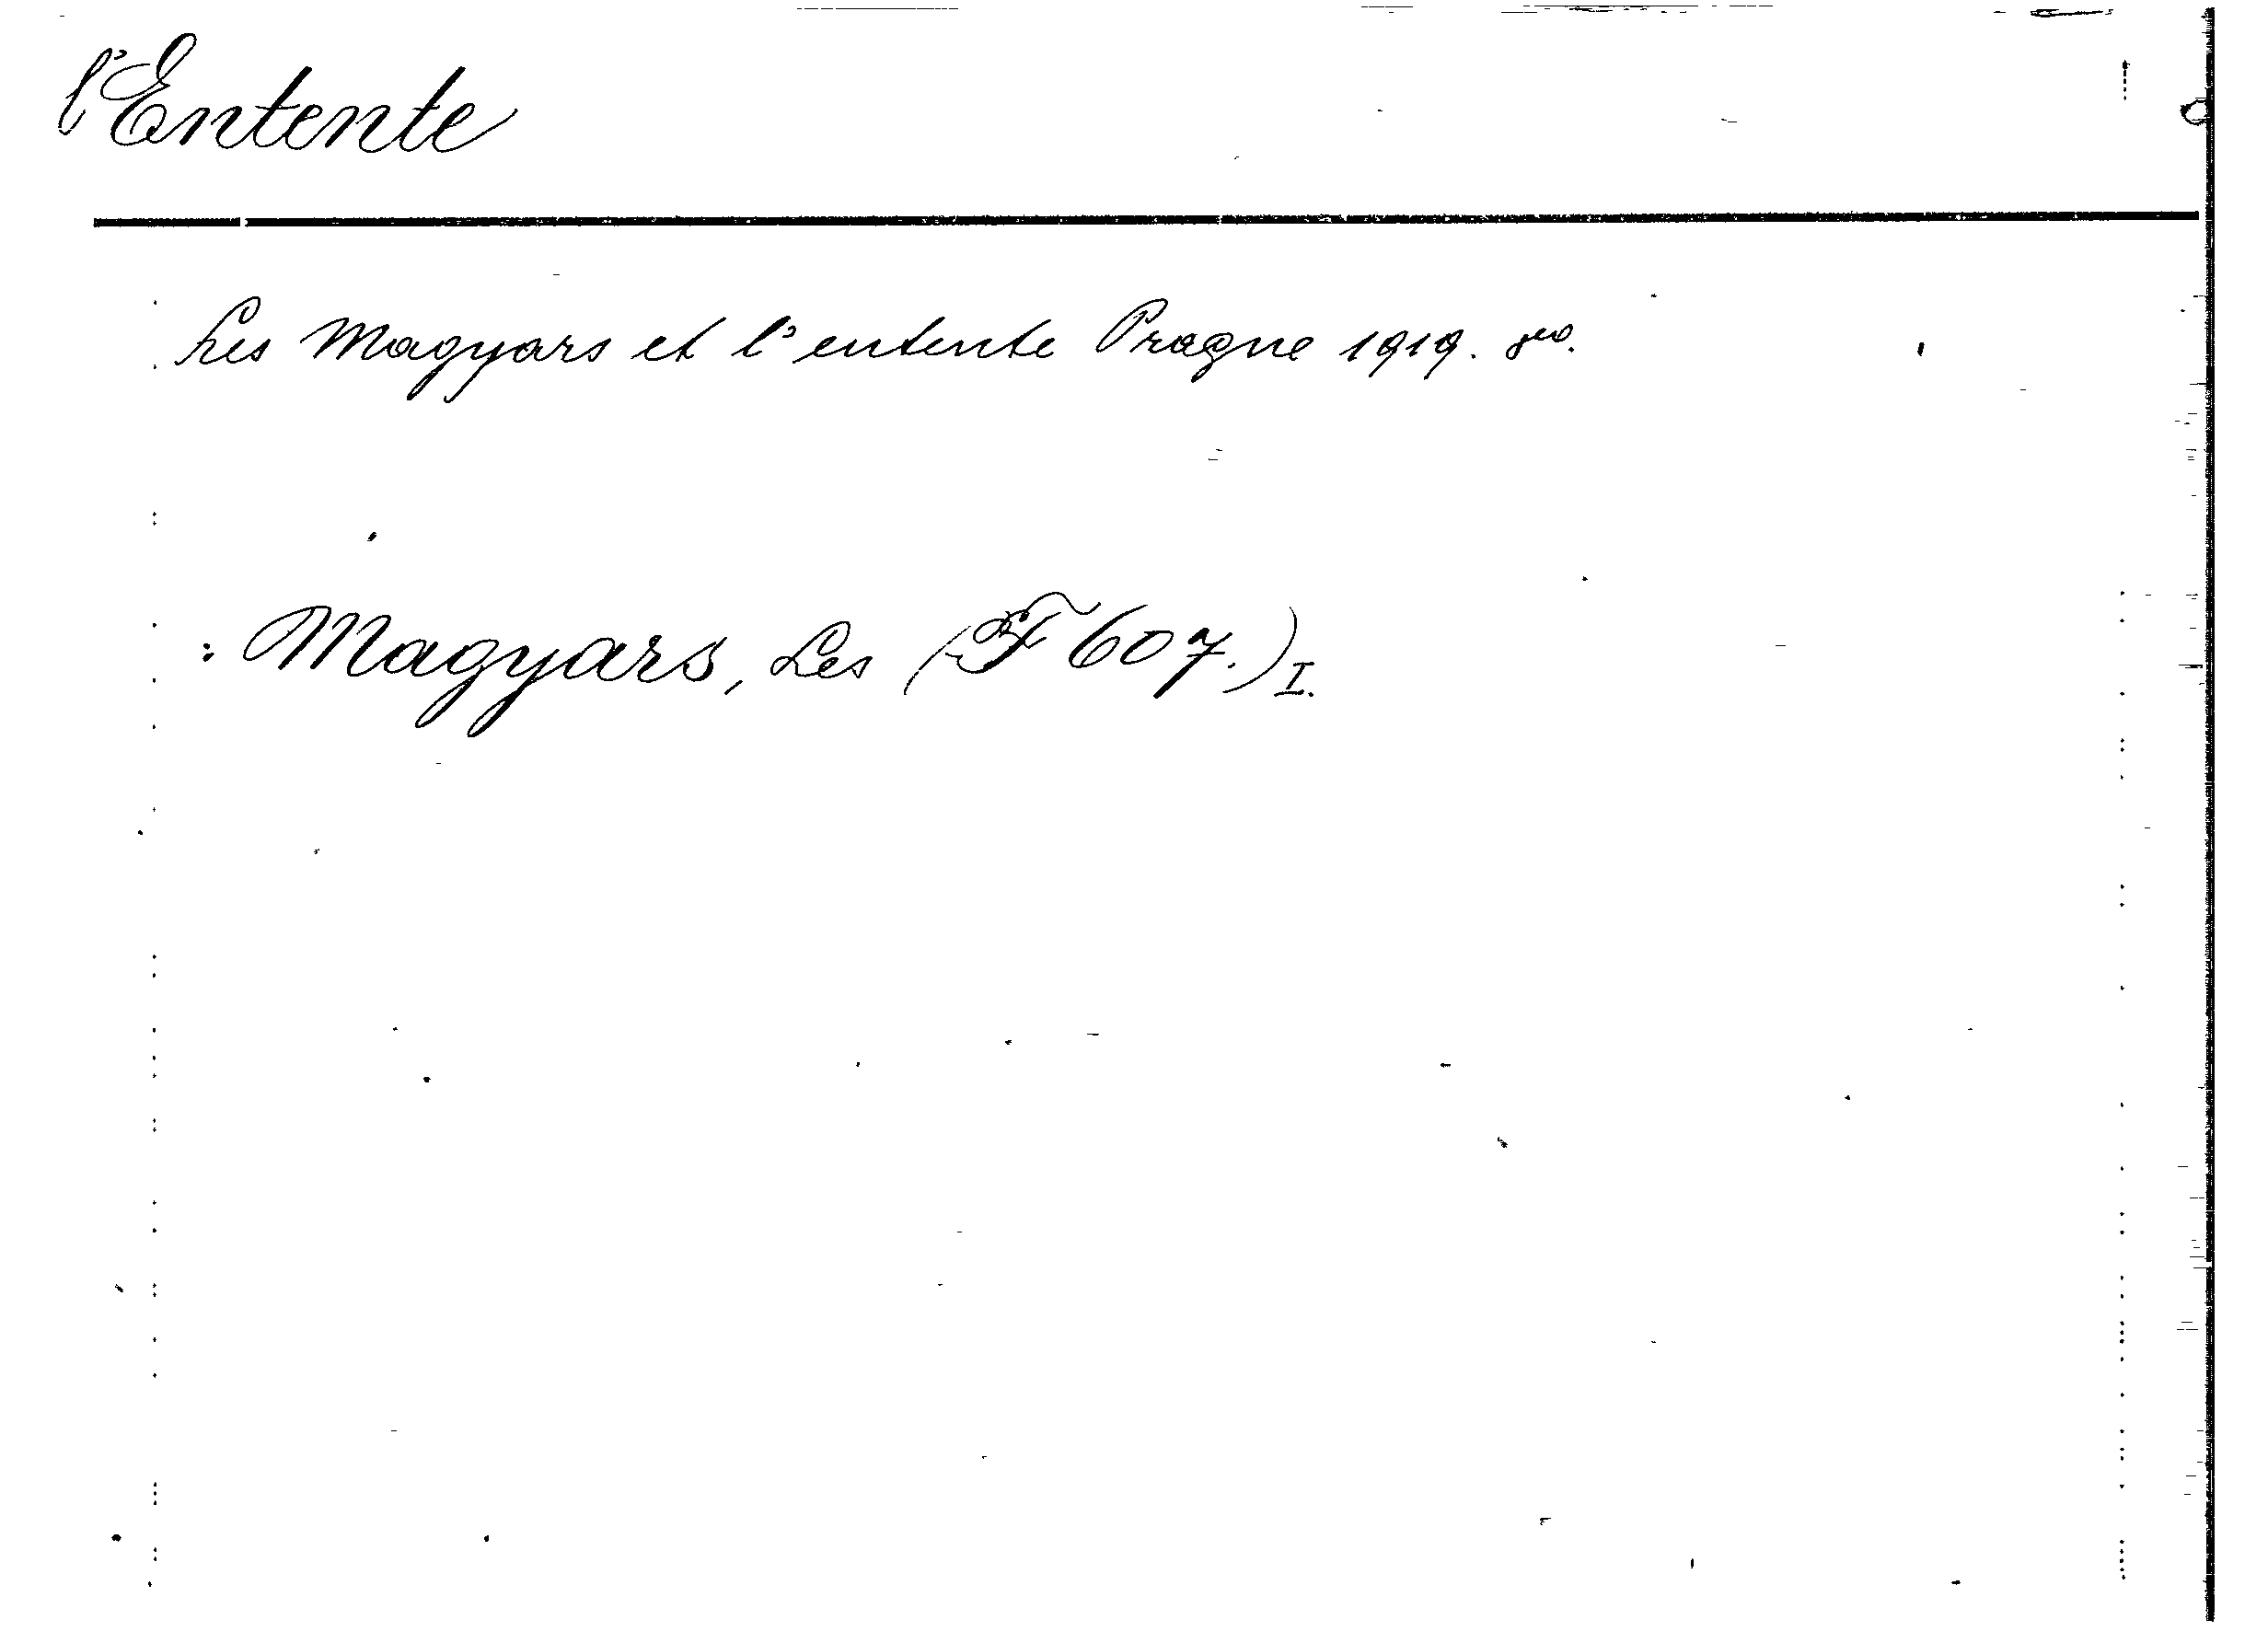 l'Entente
Les Magyars et l'entente Prague 1919. 8vo.
: Magyars, Les (F 607.) I.